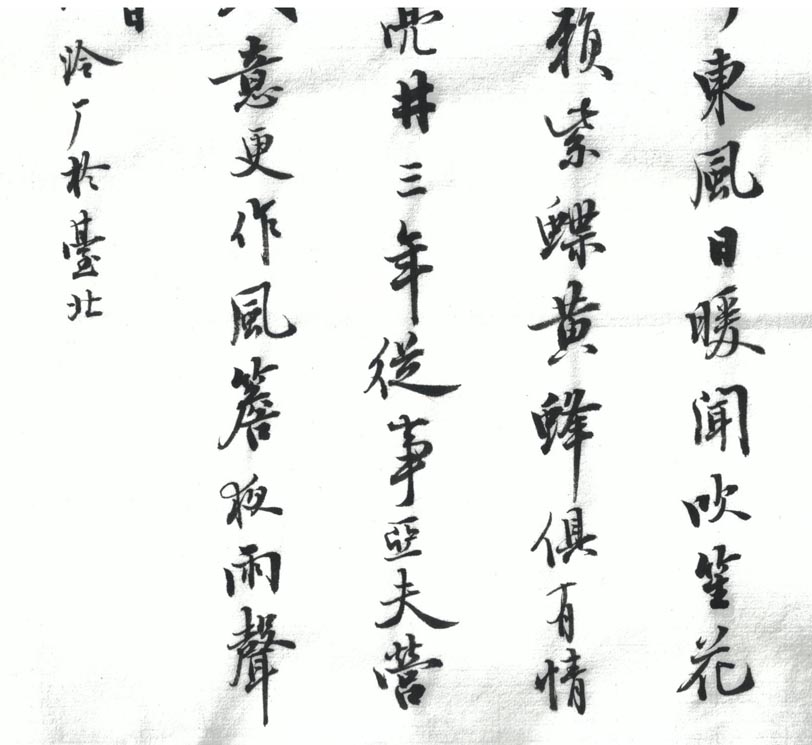 東風日暖聞吹笙花
賴紫蝶黃蜂俱有情
亮井三年從事亞夫營
意更作風簷夜雨聲
日
泠厂於臺北